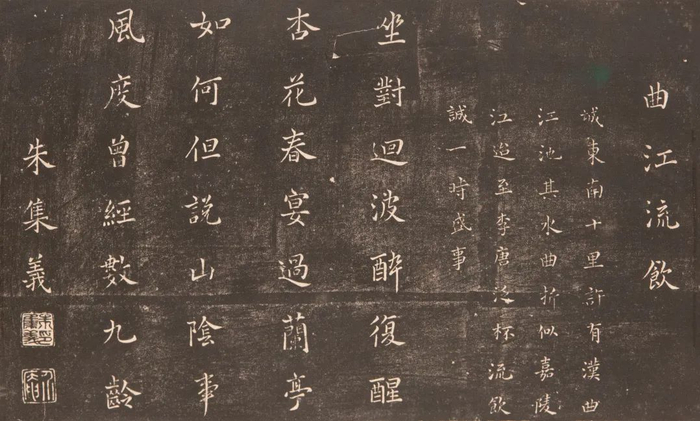 曲江流飲
城東南十里許有漢曲
江池其水曲折似嘉陵
江迨至李唐泛杯流飲
誠一時盛事
坐對迴波醉復醒
杏花春宴過蘭亭
如何但說山陰事
風度曾經數九齡
朱集義